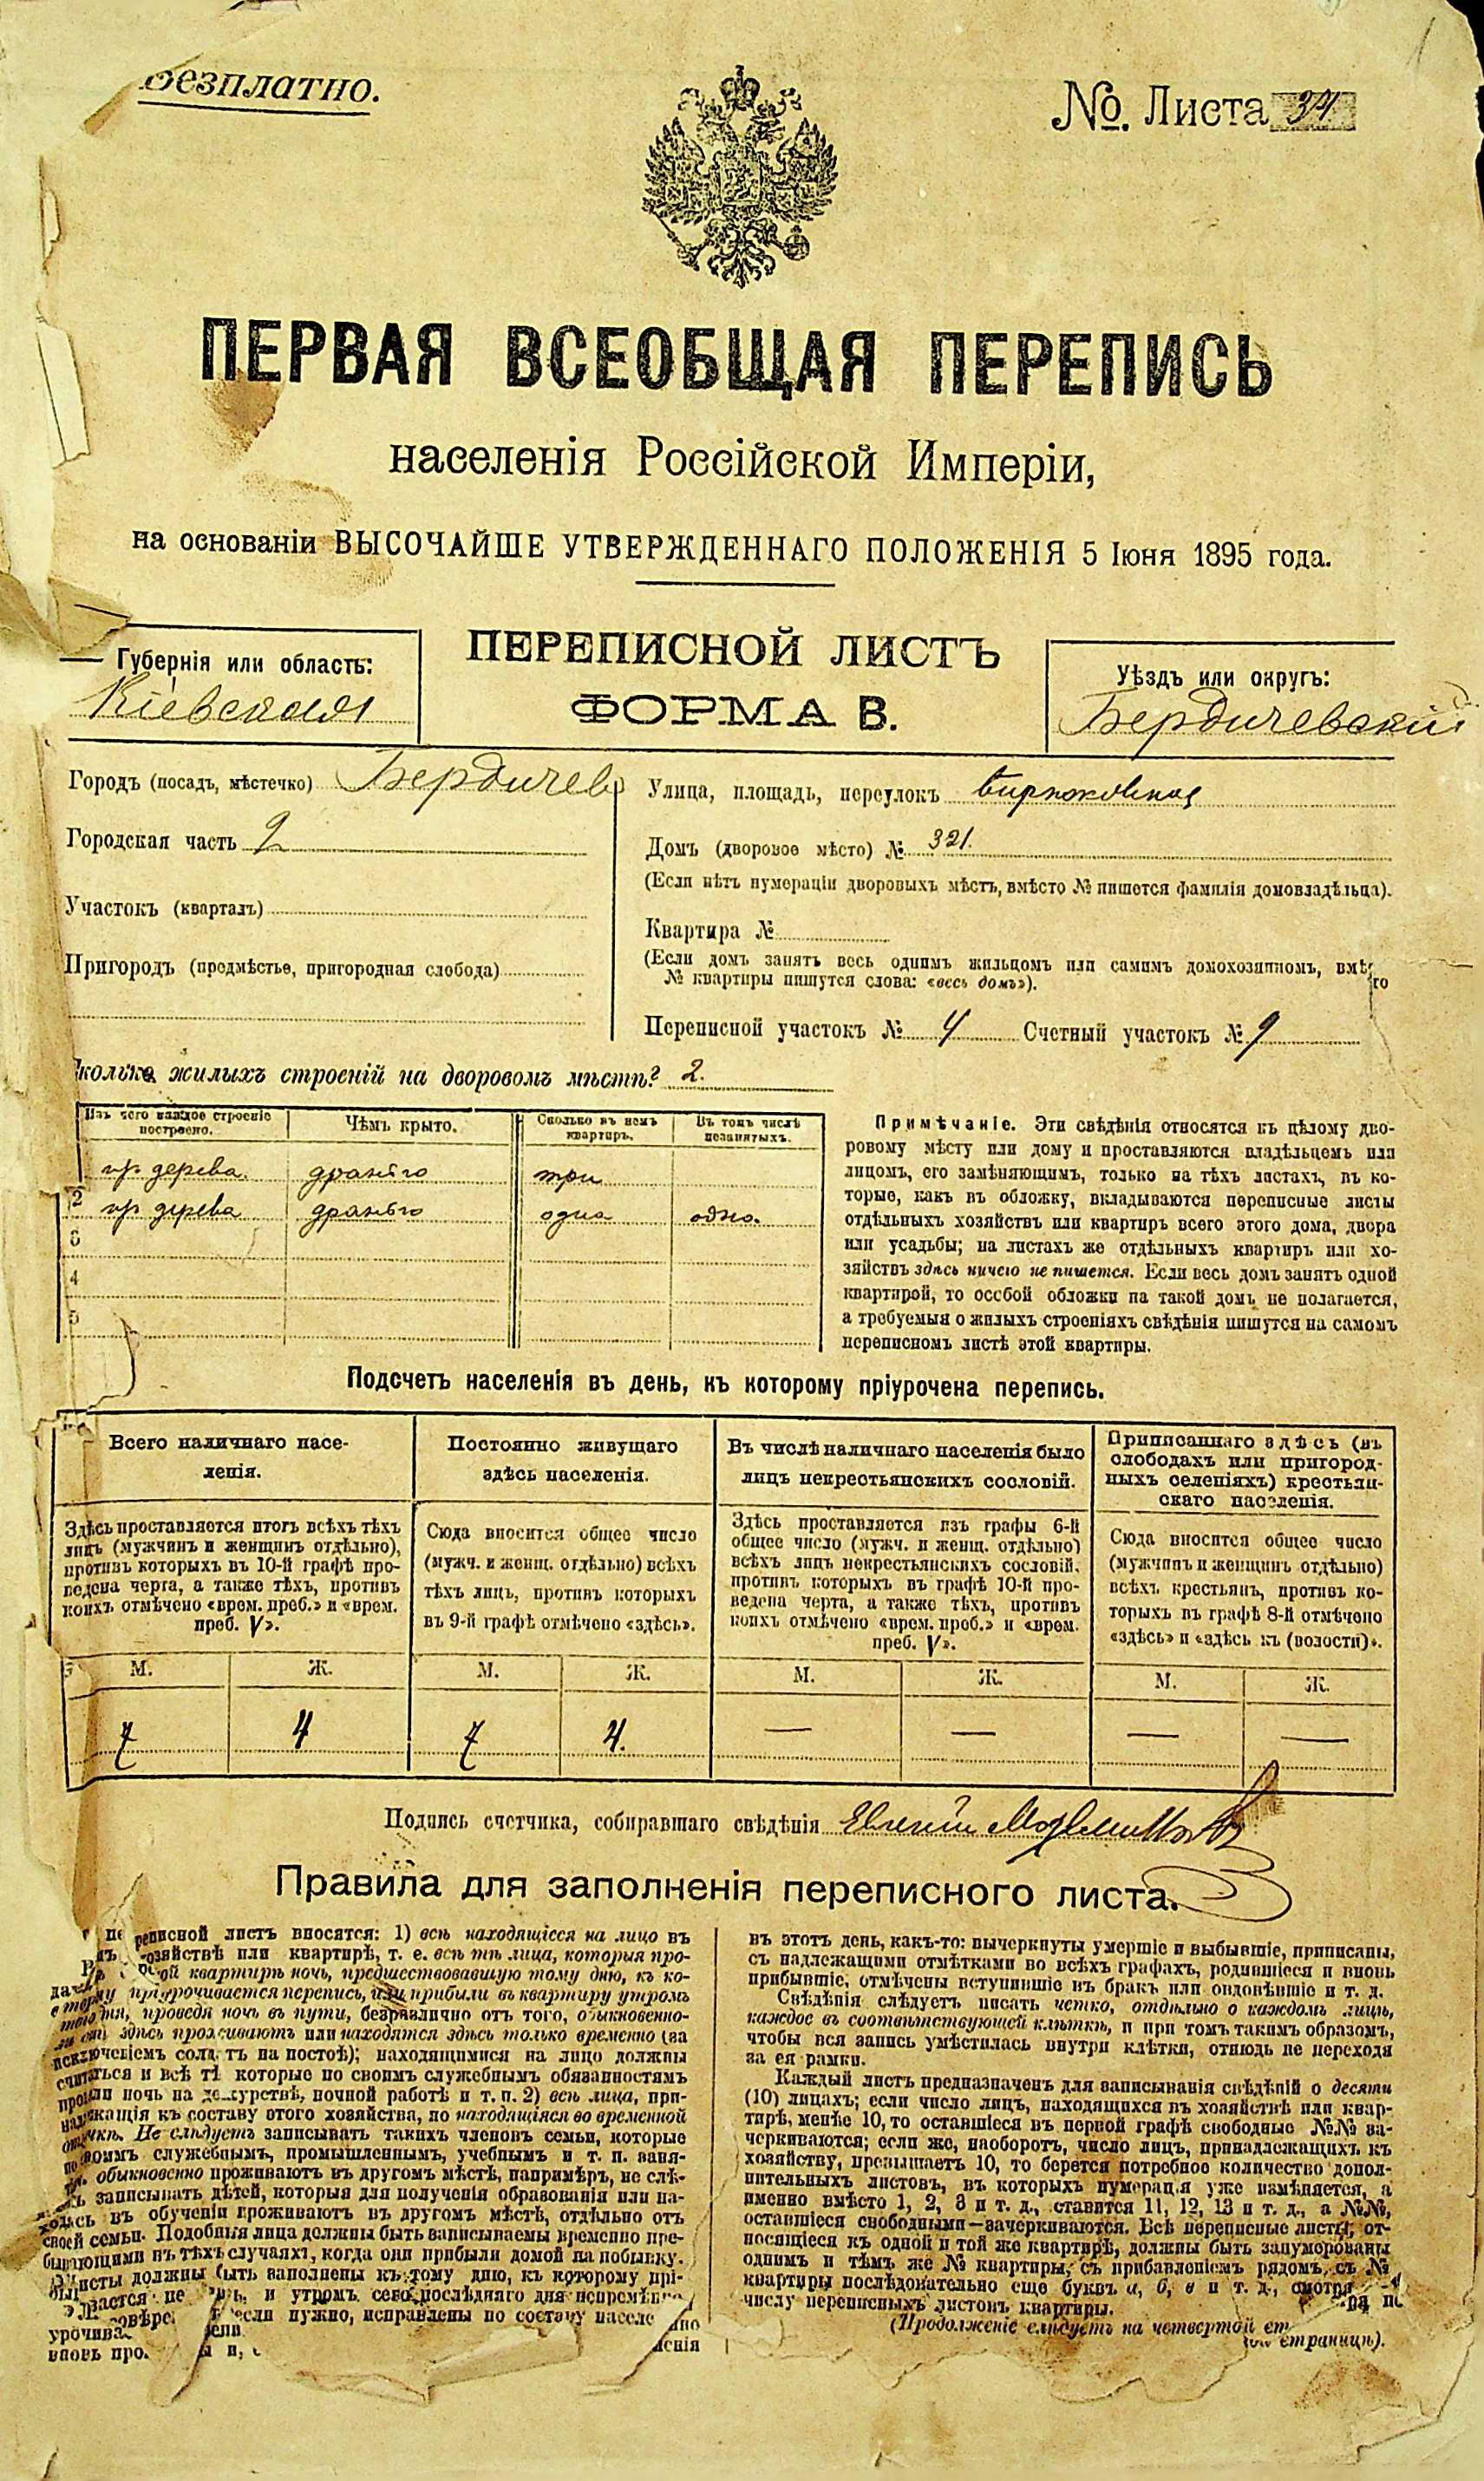 Безплатно.
№. Листа 34
ПЕРВАЯ ВСЕОБЩАЯ ПЕРЕПИСЬ
населенія Россійской Имперіи,
на основаніи ВЫСОЧАЙШЕ УТВЕРЖДЕННАГО ПОЛОЖЕНІЯ 5 Іюня 1895 года.
ПЕРЕПИСНОЙ ЛИСТЪ
ФОРМА В.
Губернія или область:
Кіевская
Уѣздъ или округъ:
Бердичевскій
Городъ (посадъ, мѣстечко) Бердичевъ
Городская часть 2
Участокъ (кварталъ)
Пригородъ (предмѣстье, пригородная слобода)
Улица, площадь, переулокъ
Домъ (дворовое мѣсто) № 321.
(Если нѣтъ нумераціи дворовыхъ мѣстъ, вмѣсто № пишется фамилія домовладѣльца).
Квартира №
(Если домъ занятъ весь однимъ жильцомъ или самимъ домохозяиномъ, вмѣсто
№ квартиры пишутся слова: «весь домъ»).
Переписной участокъ № 4 Счетный участокъ № 9
Сколько жилыхъ строеній на дворовомъ мѣстѣ? 2.
Изъ чего каждое строеніе построено.
Чѣмъ крыто.
Сколько въ немъ квартиръ.
Въ томъ числѣ незанятыхъ.
дерева. три
2 дерева одна одна.
3
4
5
Примѣчаніе. Эти свѣдѣнія относятся къ цѣлому дво-
ровому мѣсту или дому и проставляются владѣльцемъ или
лицомъ, его замѣняющимъ, только на тѣхъ листахъ, въ ко-
торые, какъ въ обложку, вкладываются переписные листы
отдѣльныхъ хозяйствъ или квартиръ всего этого дома, двора
или усадьбы; на листахъ же отдѣльныхъ квартиръ или хо-
зяйствъ здѣсь ничего не пишется. Если весь домъ занятъ одной
квартирой, то особой обложки на такой домъ не полагается,
а требуемыя о жилыхъ строеніяхъ свѣдѣнія пишутся на самомъ
переписномъ листѣ этой квартиры.
Подсчетъ населенія въ день, къ которому пріурочена перепись.
Всего наличнаго насе-
ленія.
Здѣсь проставляется итогъ всѣхъ тѣхъ
лицъ (мужчинъ и женщинъ отдѣльно),
противъ которыхъ въ 10-й графѣ про-
ведена черта, а также тѣхъ, противъ
коихъ отмѣчено «врем. преб.» и «врем.
преб. V».
Постоянно живущаго
здѣсь населенія.
Сюда вносится общее число
(мужч. и женщ. отдѣльно) всѣхъ
тѣхъ лицъ, противъ которыхъ
въ 9-й графѣ отмѣчено «здѣсь».
Въ числѣ наличнаго населенія было
лицъ некрестьянскихъ сословій.
Здѣсь проставляется изъ графы 6-й
общее число (мужч. и женщ. отдѣльно)
всѣхъ лицъ некрестьянскихъ сословій,
противъ которыхъ въ графѣ 10-й про-
ведена черта, а также тѣхъ, противъ
коихъ отмѣчено «врем. преб.» и «врем.
преб. V».
Приписаннаго здѣсь (въ
слободахъ или пригород-
ныхъ селеніяхъ) крестьян-
скаго населенія.
Сюда вносится общее число
(мужчинъ и женщинъ отдѣльно)
всѣхъ крестьянъ, противъ ко-
торыхъ въ графѣ 8-й отмѣчено
«здѣсь» и «здѣсь къ (волости)».
М. Ж. М. Ж. М. Ж. М. Ж.
7 4 7 4. — — — —
Подпись счетчика, собиравшаго свѣдѣнія Евгеній
Правила для заполненія переписного листа.
переписной листъ вносятся: 1) всѣ находящіеся на лицо въ
хозяйствѣ или квартирѣ, т. е. всѣ тѣ лица, которыя про-
квартирѣ ночь, предшествовавшую тому дню, къ ко-
торому пріурочивается перепись, или прибыли въ квартиру утромъ
дня, проведя ночь въ пути, безразлично отъ того, обыкновенно-
ли они здѣсь проживаютъ или находятся здѣсь только временно (за
исключеніемъ солдатъ на постоѣ); находящимися на лицо должны
считаться и всѣ тѣ которые по своимъ служебнымъ обязанностямъ
провели ночь на дежурствѣ, ночной работѣ и т. п. 2) всѣ лица, при-
надлежащія къ составу этого хозяйства, но находящіяся во временной
отлучкѣ. Не слѣдуетъ записывать такихъ членовъ семьи, которые
по своимъ служебнымъ, промышленнымъ, учебнымъ и т. п. заня-
тіямъ, обыкновенно проживаютъ въ другомъ мѣстѣ, напримѣръ, не слѣ-
дуетъ записывать дѣтей, которыя для полученія образованія или на-
ходясь въ обученіи проживаютъ въ другомъ мѣстѣ, отдѣльно отъ
своей семьи. Подобныя лица должны быть записываемы временно пре-
бывающими въ тѣхъ случаяхъ, когда они прибыли домой на побывку.
Листы должны быть заполнены къ тому дню, къ которому прі-
урочивается и утромъ сего послѣдняго дня непремѣнно
если нужно, исправлены по составу населенія
вновь
въ этотъ день, какъ-то: вычеркнуты умершіе и выбывшіе, приписаны,
съ надлежащими отмѣтками во всѣхъ графахъ, родившіеся и вновь
прибывшіе, отмѣчены вступившіе въ бракъ или овдовѣвшіе и т. д.
Свѣдѣнія слѣдуетъ писать четко, отдѣльно о каждомъ лицѣ,
каждое въ соотвѣтствующей клѣткѣ, и при томъ такимъ образомъ,
чтобы вся запись умѣстилась внутри клѣтки, отнюдь не переходя
за ея рамки.
Каждый листъ предназначенъ для записыванія свѣдѣній о десяти
(10) лицахъ; если число лицъ, находящихся въ хозяйствѣ или квар-
тирѣ, менѣе 10, то оставшіеся въ первой графѣ свободные №№ за-
черкиваются; если же, наоборотъ, число лицъ, принадлежащихъ къ
хозяйству, превышаетъ 10, то берется потребное количество допол-
нительныхъ листовъ, въ которыхъ нумерація уже измѣняется, а
именно вмѣсто 1, 2, 3 и т. д., ставится 11, 12, 13 и т. д., а №№,
оставшіеся свободными—зачеркиваются. Всѣ переписные листы, от-
носящіеся къ одной и той же квартирѣ, должны быть занумерованы
однимъ и тѣмъ же № квартиры, съ прибавленіемъ рядомъ, съ №
квартиры послѣдовательно еще буквъ а, б, в и т. д., смотря по
числу переписныхъ листовъ квартиры.
(Продолженіе слѣдуетъ на четвертой
страницѣ).